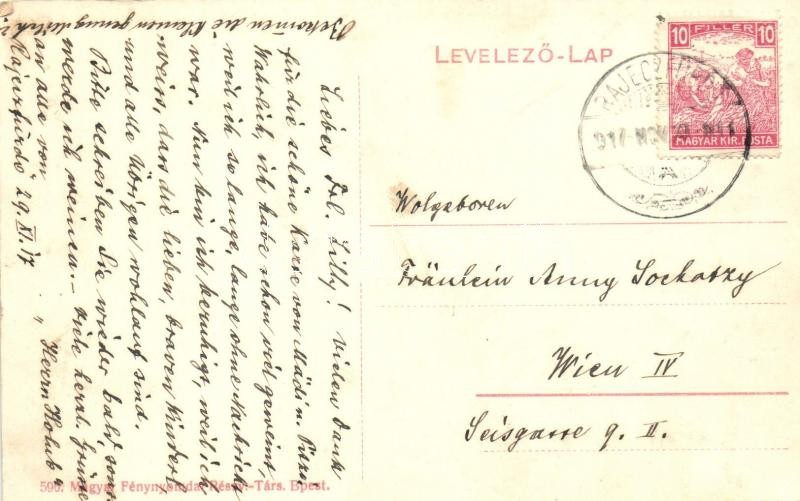 LEVELEZŐ-LAP
10 FILLÉR 10
MAGYAR KIR. POSTA
RAJECZFÜRDŐ
917 NOV
Wolgeboren
Fräulein Anny Sockaszy
Wien IV
Seisgasse 9. II.
Liebes Frl. Lilly! vielen Dank
für die schöne Karte von Mädi u. Putzi
Wahrlich, ich habe schon viel geweint,
weil ich so lange, lange ohne Nachricht
war. Nun bin ich beruhigt, weil ich
weiss, dass die lieben, braven Kinderl
und alle Übrigen wohlauf sind.
Bitte schreiben Sie wieder bald, sonst
werde ich weinen. – Viele herzl. Grüsse
an alle von „Herrn Holub“
Rajeczfürdő 29. XI. 17
Bekommen die Kleinen genug Milch?
590. Magyar Fénynyomdai Részv.-Társ. Bpest.